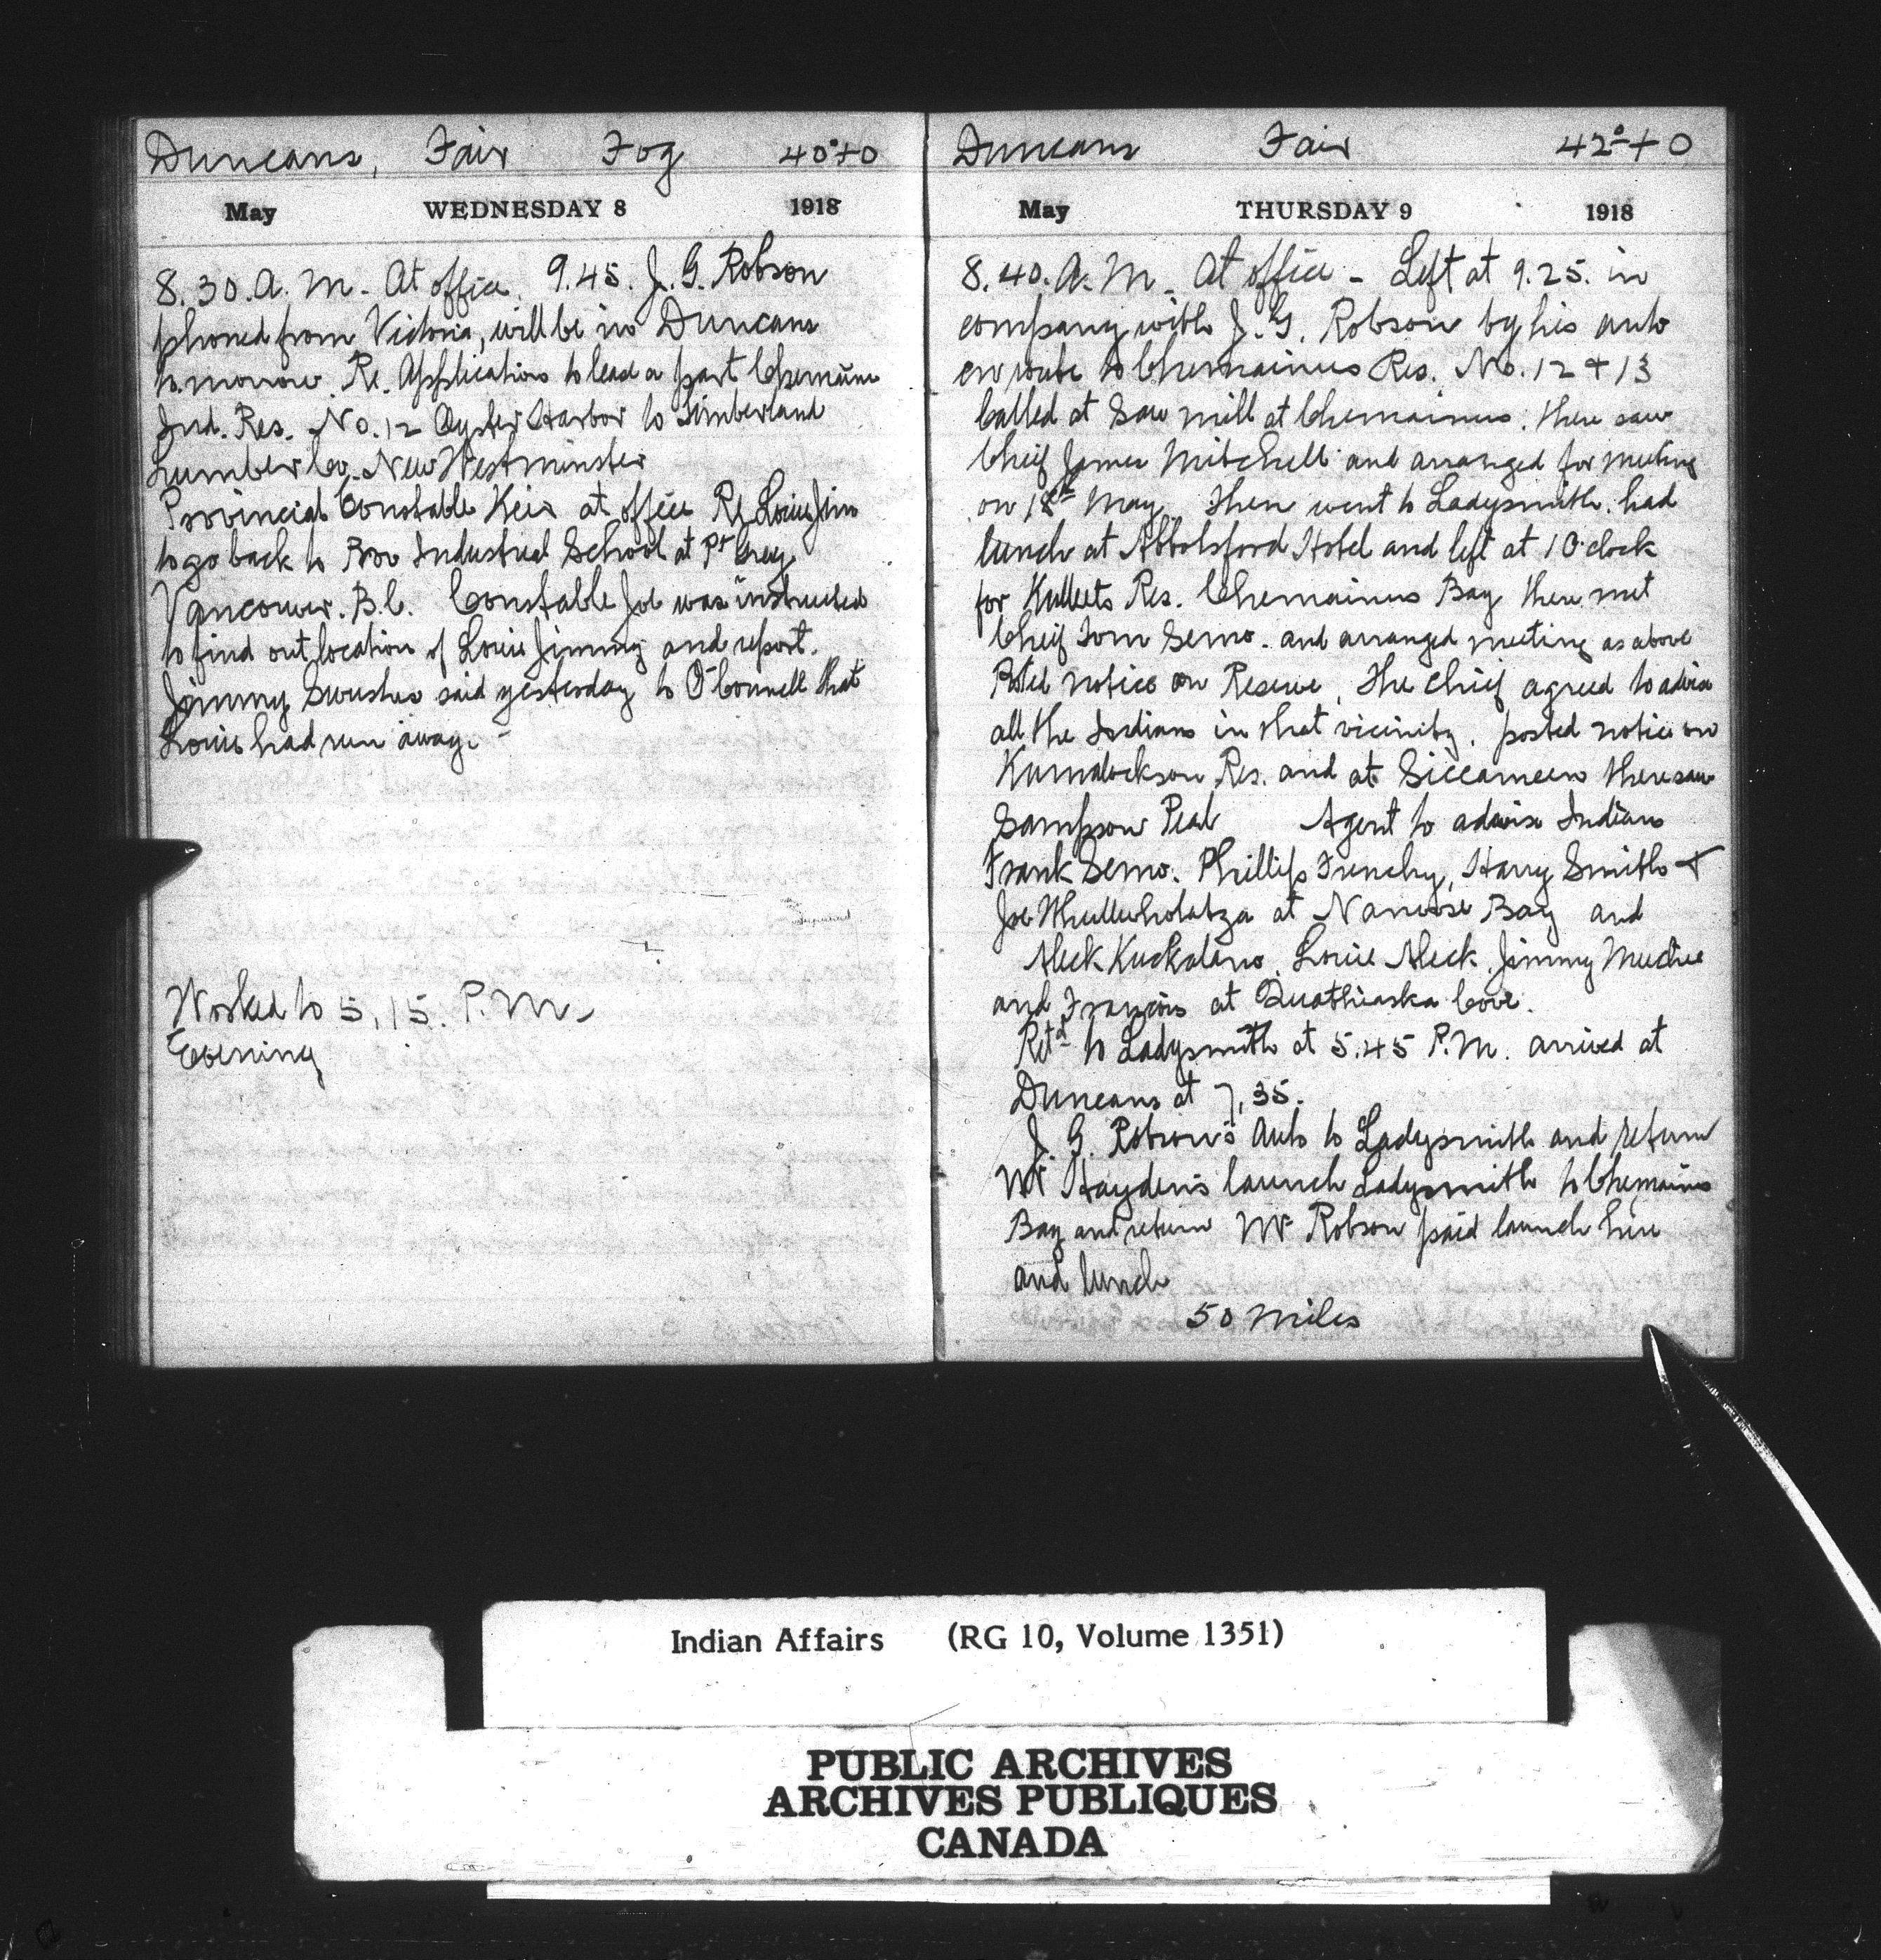 Duncans, Fair Fog 40°+0
May WEDNESDAY 8 1918
8.30. A. M. - At office. 9.45. J. G. Robson
phoned from Victoria, will be in Duncans
to morrow. Re. Application to lease a part Chemainus
Ind. Res. No. 12 Oyster Harbor to Timberland
Lumber Co. New Westminster
Provincial Constable Keir at office Re Louie Jim
to go back to Prov Industrial School at Pt Grey
Vancouver. B.C. Constable Joe was instructed
to find out location of Louie Jimmy and report.
Jimmy said yesterday to O'Connell that
Louie had run away. -
Worked to 5,15. P. M.
Evening
Duncans Fair 42°+0
May THURSDAY 9 1918
8.40. A. M. - At office - Left at 9.25. in
company with J. G. Robson by his auto
en route to Chemainus Res. No. 12 + 13
Called at Saw mill at Chemainus. there saw
Cheif James Mitchell and arranged for meeting
on 18th May. Then went to Ladysmith. had
lunch at Abbotsford Hotel and left at 1 O'clock
for Kulleets Res. Chemainus Bay there met
Cheif Tom Semo. and arranged meeting as above
Posted notice on Reserve, the chief agreed to advise
all the Indians in that vicinity. posted notice on
Res. and at Siccameen there saw
Sampson Peal Agent to advise Indians
Frank Semo. Phillip Frenchy, Harry Smith +
Joe at Nanoose Bay and
Aleck Louie Aleck. Jimmy
and Francois at Quathiaska Cove.
Retd to Ladysmith at 5.45 P.M. arrived at
Duncans at 7,35.
J. G. Robson's Auto to Ladysmith and return
Mr Hayden's launch Ladysmith to Chemainus
Bay and return Mr Robson paid launch hire
and lunch
50 Miles
Indian Affairs (RG 10, Volume 1351)
PUBLIC ARCHIVES
ARCHIVES PUBLIQUES
CANADA